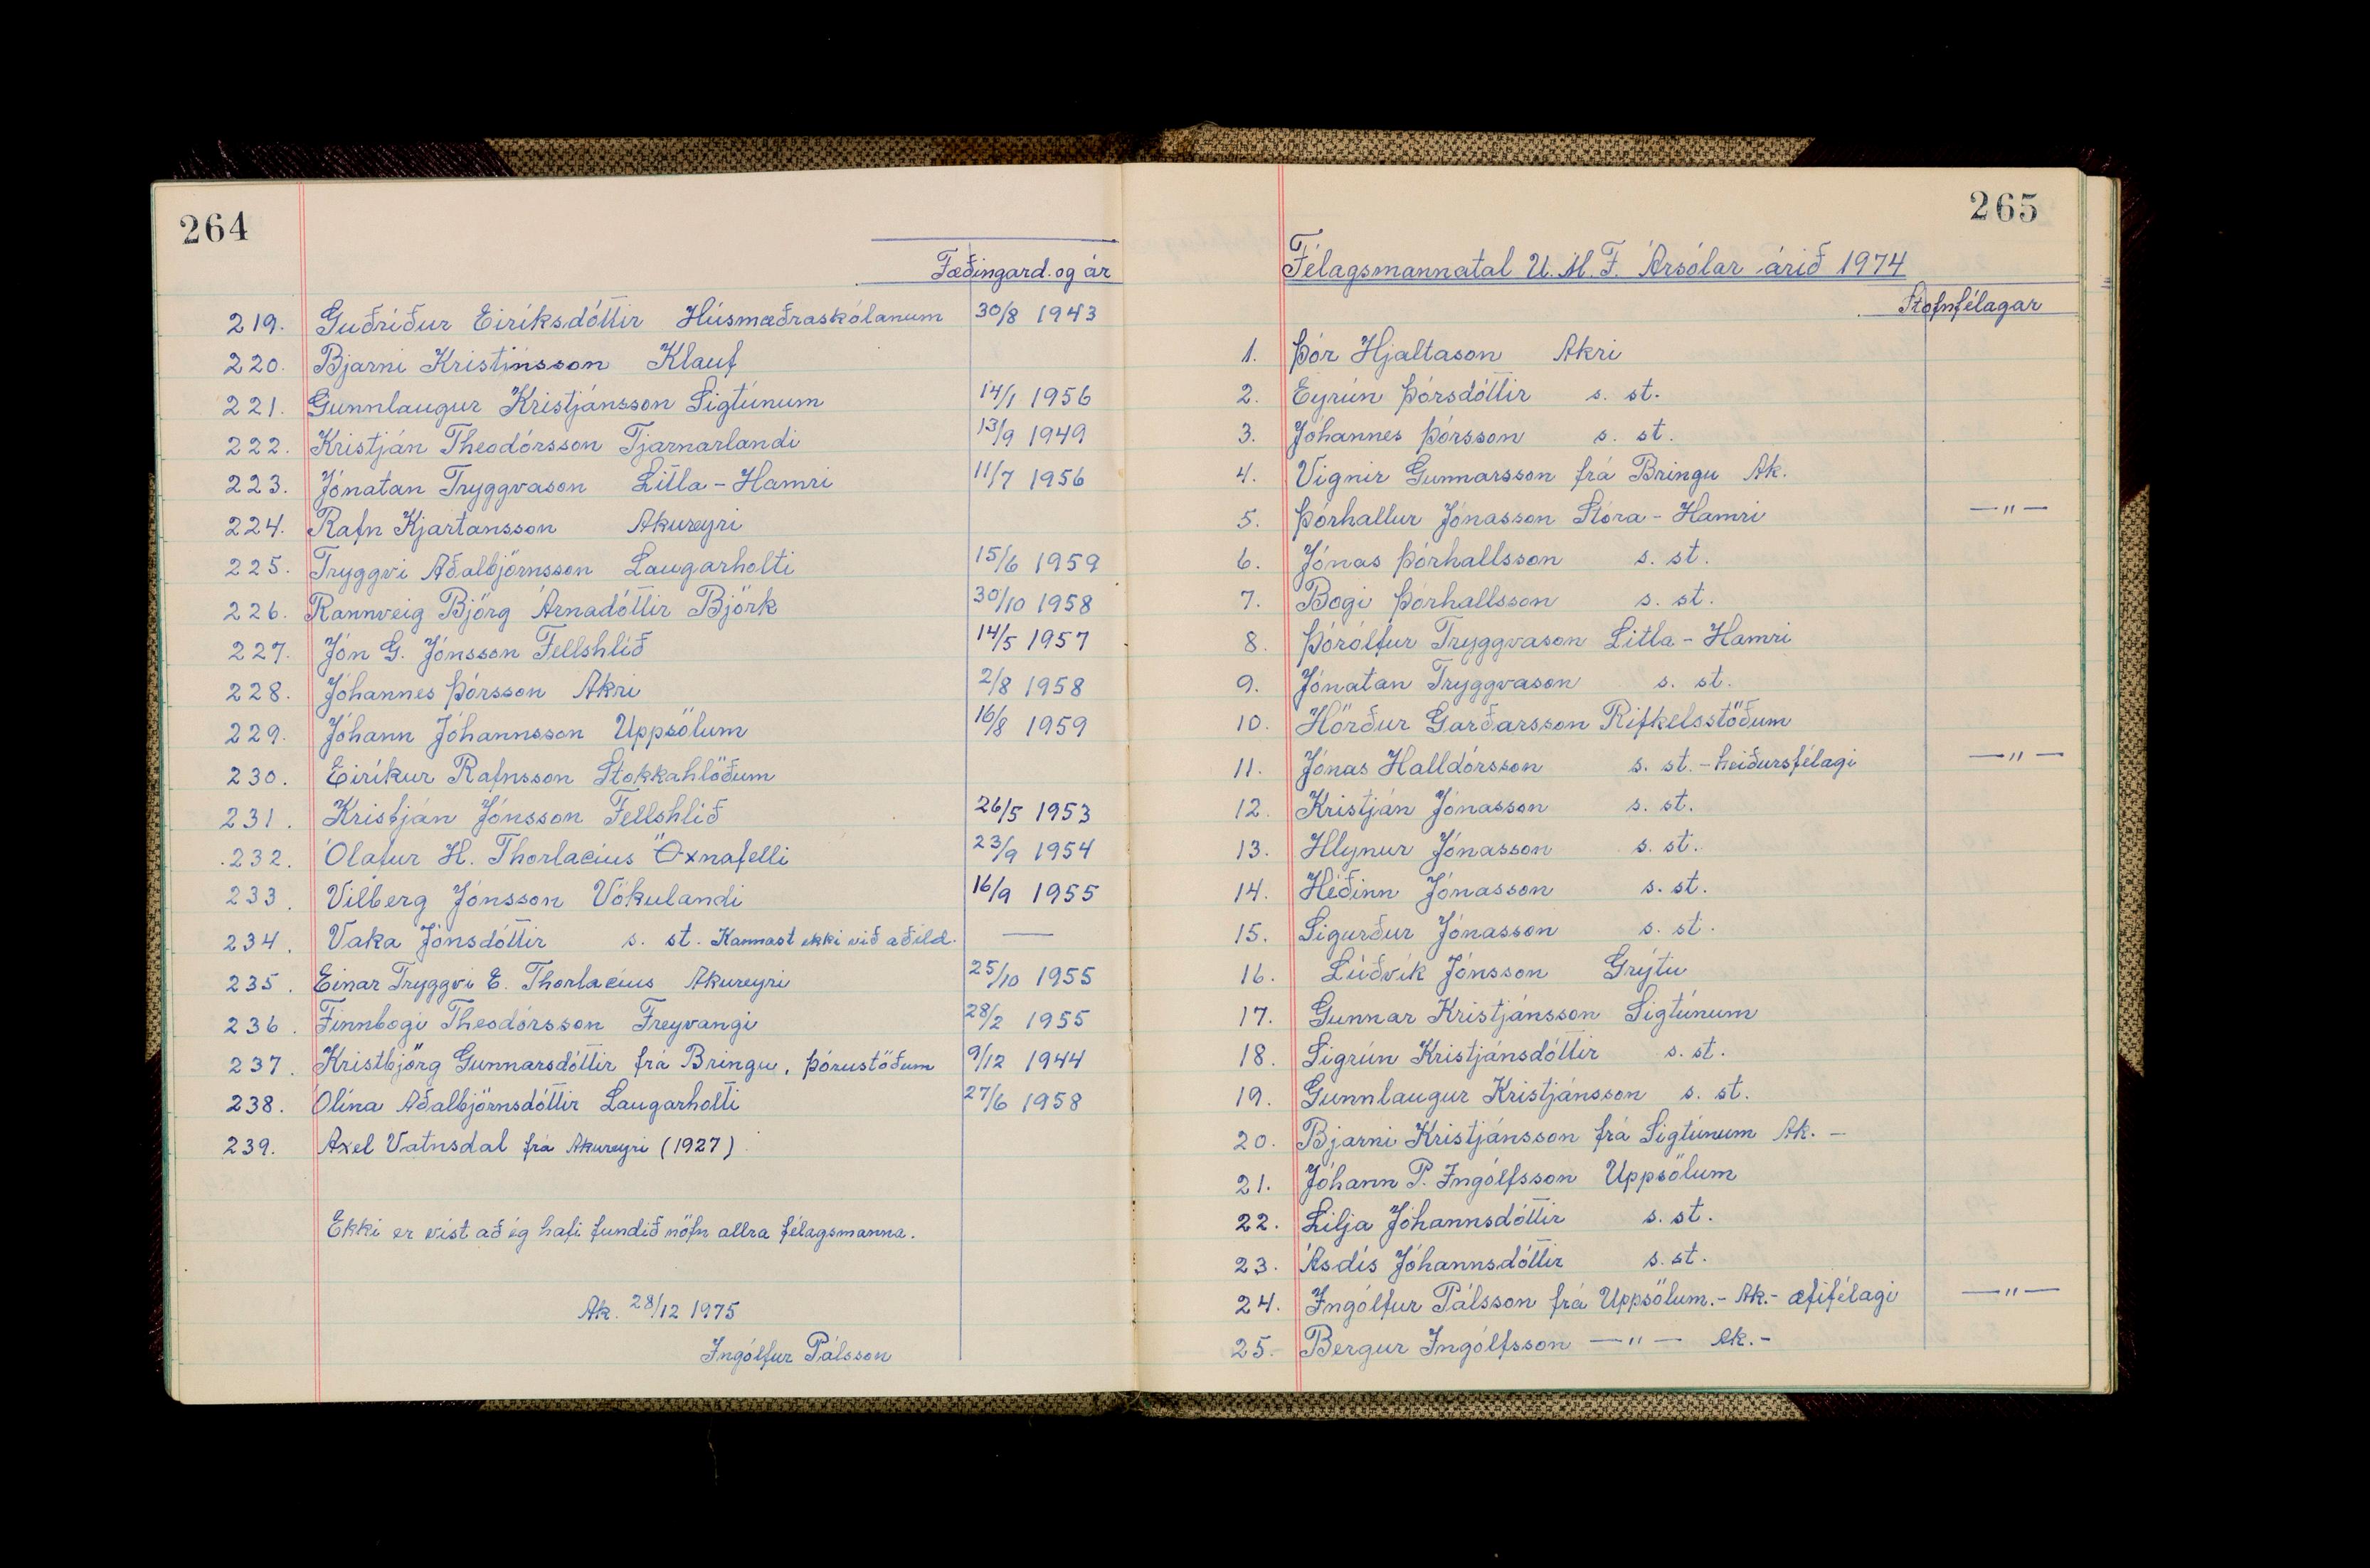 264
Fæðingard. og ár
219. Guðríður Eiríksdóttir Húsmæðraskólanum 30/8 1943
220. Bjarni Kristinsson Klauf
221. Gunnlaugur Kristjánsson Sigtúnum 14/1 1956
222. Kristján Theodórsson Tjarnarlandi 13/9 1949
223. Jónatan Tryggvason Litla-Hamri 11/7 1956
224. Rafn Kjartansson Akureyri
225. Tryggvi Aðalbjörnsson Laugarholti 15/6 1959
226. Rannveig Björg Árnadóttir Björk 30/10 1958
227. Jón G. Jónsson Fellshlíð 14/5 1957
228. Jóhannes Þórsson Akri 2/8 1958
229. Jóhann Jóhannsson Uppsölum 16/8 1959
230. Eiríkur Rafnsson Stokkahlöðum
231. Kristján Jónsson Fellshlíð 26/5 1953
232. Ólafur H. Thorlacius Öxnafelli 23/9 1954
233. Vilberg Jónsson Vökulandi 16/9 1955
234. Vaka Jónsdóttir s. st. Kannast ekki við aðild. —
235. Einar Tryggvi E. Thorlacius Akureyri 25/10 1955
236. Finnbogi Theodórsson Freyvangi 28/2 1955
237. Kristbjörg Gunnarsdóttir frá Bringu, Þórustöðum 9/12 1944
238. Ólína Aðalbjörnsdóttir Laugarholti 27/6 1958
239. Axel Vatnsdal frá Akureyri (1927)
Ekki er víst að ég hafi fundið nöfn allra félagsmanna.
Ak. 28/12 1975
Ingólfur Pálsson
265
Félagsmannatal U.M.F. Ársólar árið 1974
Stofnfélagar
1. Þór Hjaltason Akri
2. Eyrún Þórsdóttir s. st.
3. Jóhannes Þórsson s. st.
4. Vignir Gunnarsson frá Bringu Ak.
5. Þórhallur Jónasson Stóra-Hamri —"—
6. Jónas Þórhallsson s. st.
7. Bogi Þórhallsson s. st.
8. Þórólfur Tryggvason Litla-Hamri
9. Jónatan Tryggvason s. st.
10. Hörður Garðarsson Rifkelsstöðum
11. Jónas Halldórsson s. st. - heiðursfélagi —"—
12. Kristján Jónasson s. st.
13. Hlynur Jónasson s. st.
14. Héðinn Jónasson s. st.
15. Sigurður Jónasson s. st.
16. Lúðvík Jónsson Grýtu
17. Gunnar Kristjánsson Sigtúnum
18. Sigrún Kristjánsdóttir s. st.
19. Gunnlaugur Kristjánsson s. st.
20. Bjarni Kristjánsson frá Sigtúnum Ak. -
21. Jóhann P. Ingólfsson Uppsölum
22. Lilja Jóhannsdóttir s. st.
23. Ásdís Jóhannsdóttir s. st.
24. Ingólfur Pálsson frá Uppsölum.- Ak.- æfifélagi —"—
25. Bergur Ingólfsson —"— Ak.-